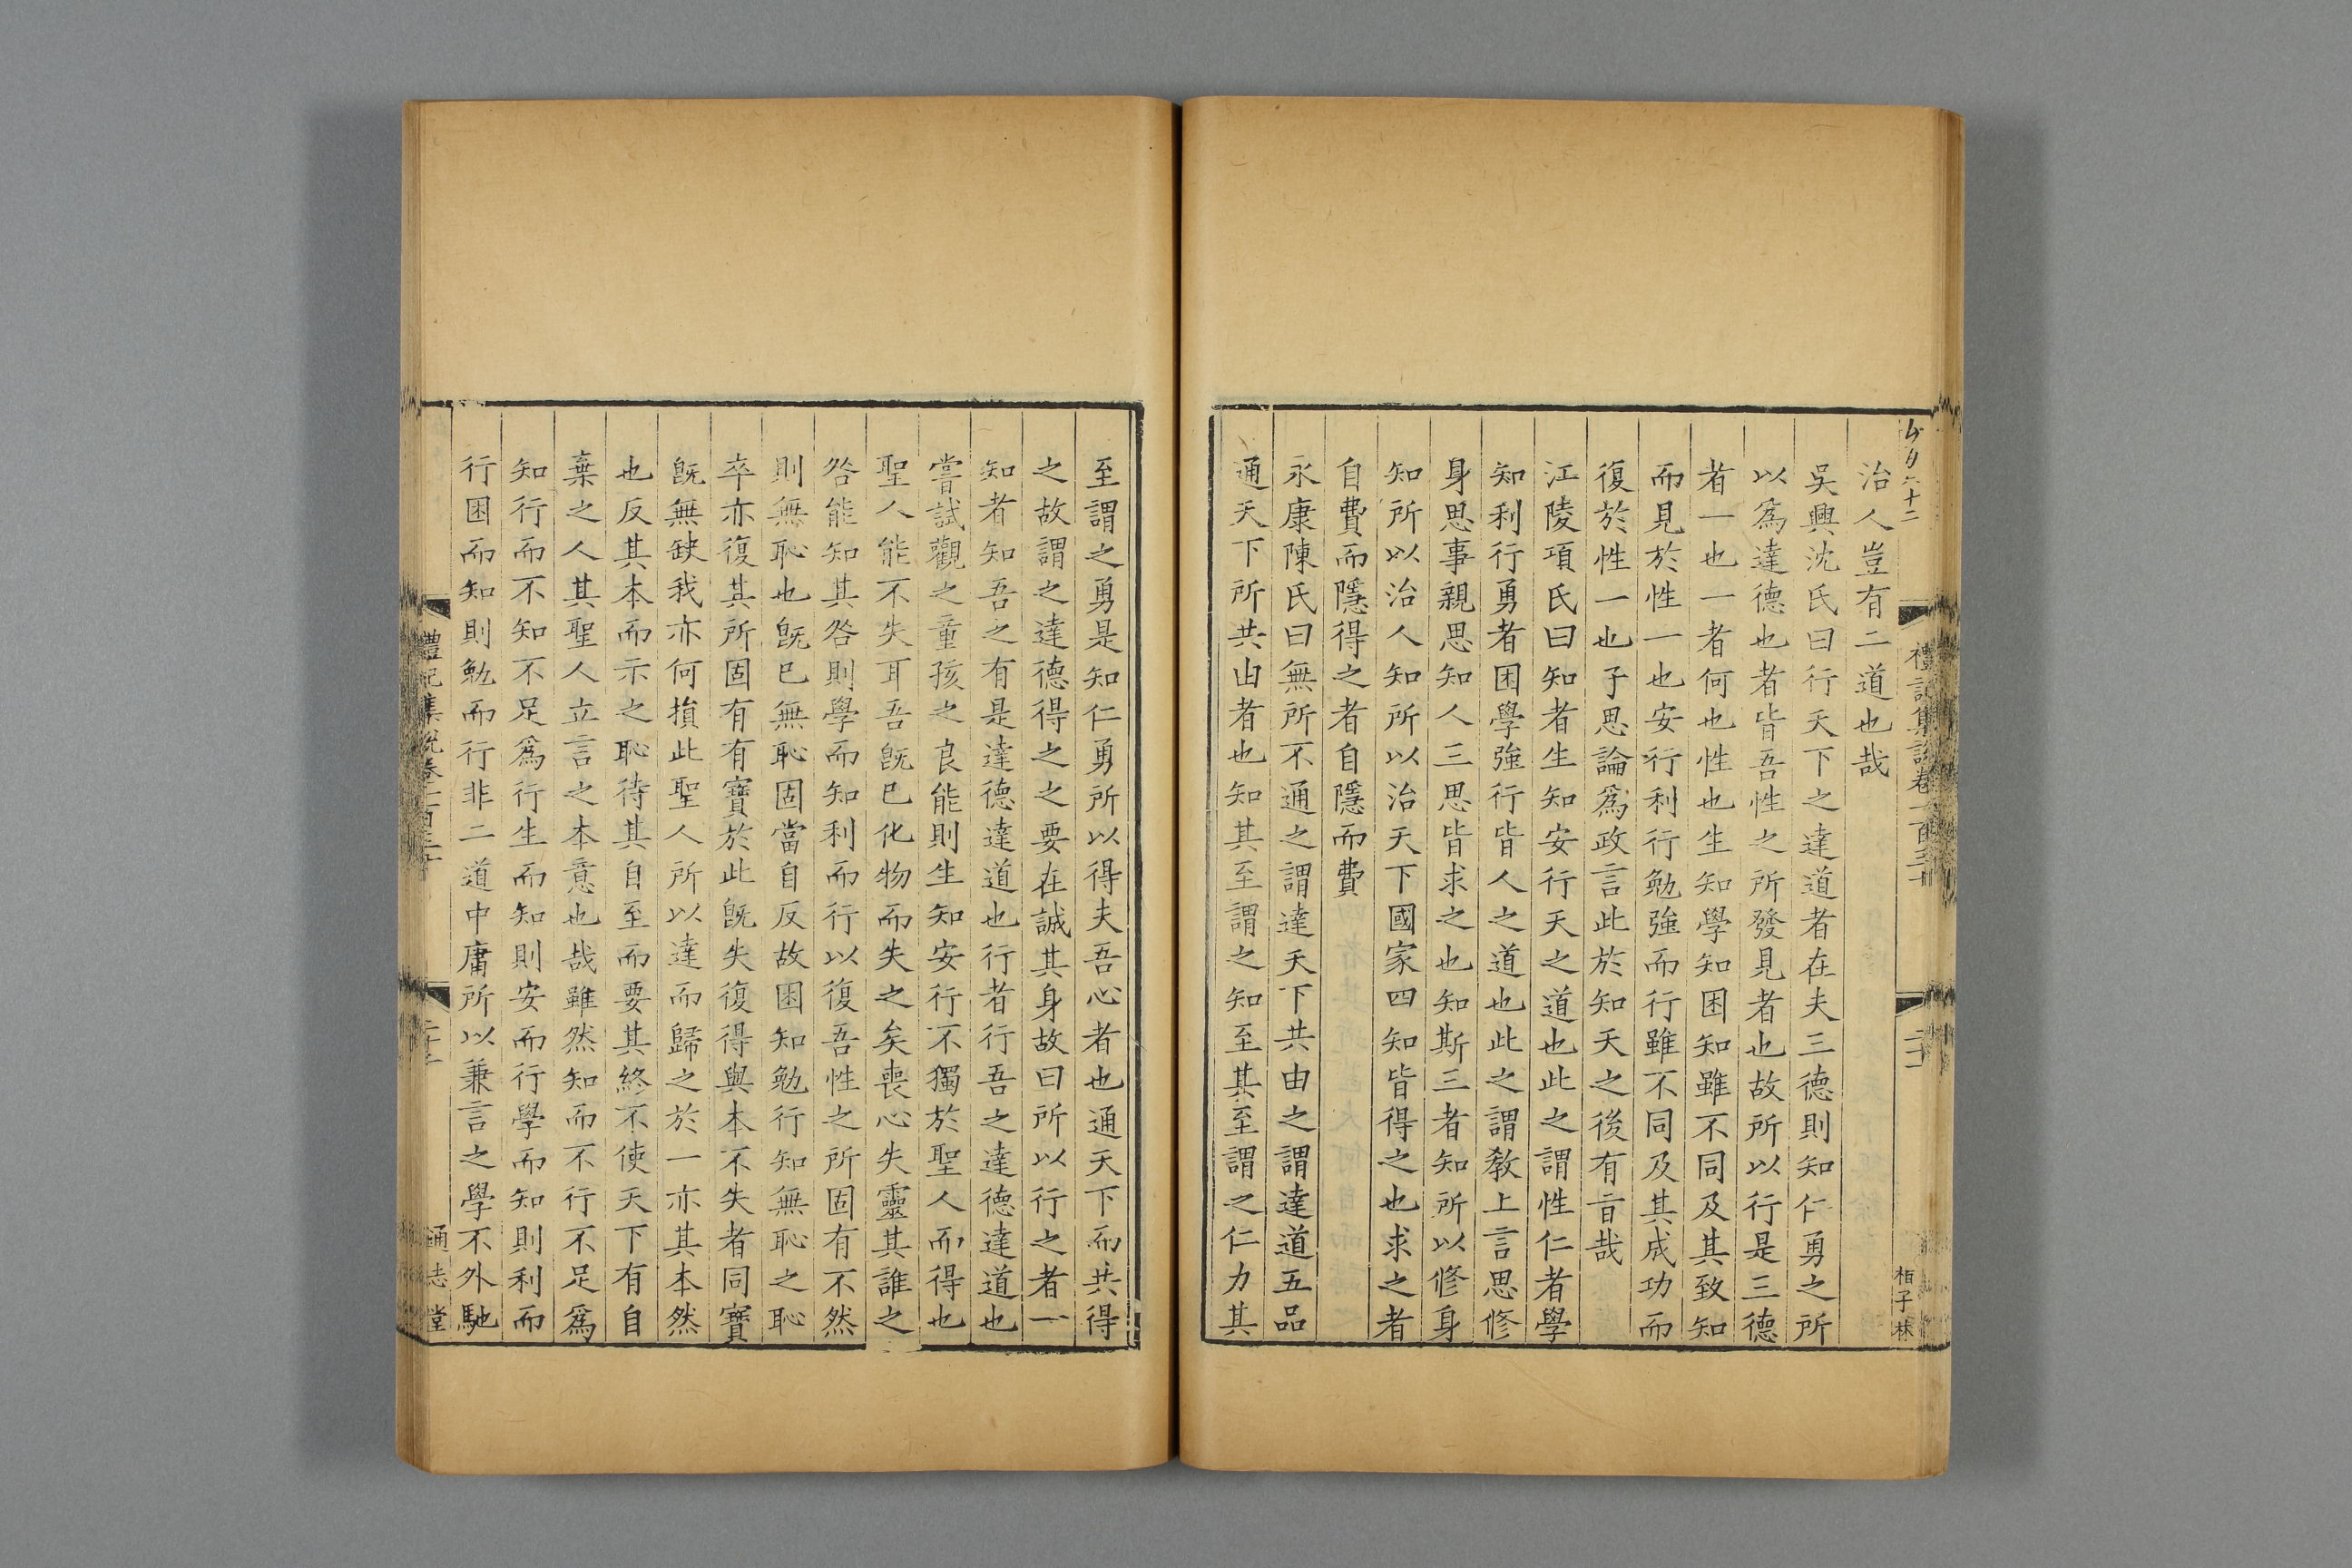 治人豈有二道也哉
吳興沈氏曰行天下之達道者在夫三德則知仁勇之所
以爲達德也者皆吾性之所發見者也故所以行是三德
者一也一者何也性也生知學知困知雖不同及其致知
而見於性一也安行利行勉強而行雖不同及其成功而
復於性一也子思論爲政言此於知天之後有旨哉
江陵項氏曰知者生知安行天之道也此之謂性仁者學
知利行勇者困學強行皆人之道也此之謂敎上言思修
身思事親思知人三思皆求之也知斯三者知所以修身
知所以治人知所以治天下國家四知皆得之也求之者
自費而隱得之者自隱而費
永康陳氏曰無所不通之謂達天下共由之謂達道五品
通天下所共由者也知其至謂之知至其至謂之仁力其
至謂之勇是知仁勇所以得夫吾心者也通天下而共得
之故謂之達德得之之要在誠其身故曰所以行之者一
知者知吾之有是達德達道也行者行吾之達德達道也
嘗試觀之童孩之良能則生知安行不獨於聖人而得也
聖人能不失耳吾旣已化物而失之矣喪心失靈其誰之
咎能知其咎則學而知利而行以復吾性之所固有不然
則無恥也旣已無恥固當自反故困知勉行知無恥之恥
卒亦復其所固有有寶於此旣失復得與本不失者同寶
旣無缺我亦何損此聖人所以達而歸之於一亦其本然
也反其本而示之恥待其自至而要其終不使天下有自
棄之人其聖人立言之本意也哉雖然知而不行不足爲
知行而不知不足爲行生而知則安而行學而知則利而
行困而知則勉而行非二道中庸所以兼言之學不外馳
禮記集說卷一百三十
通志堂